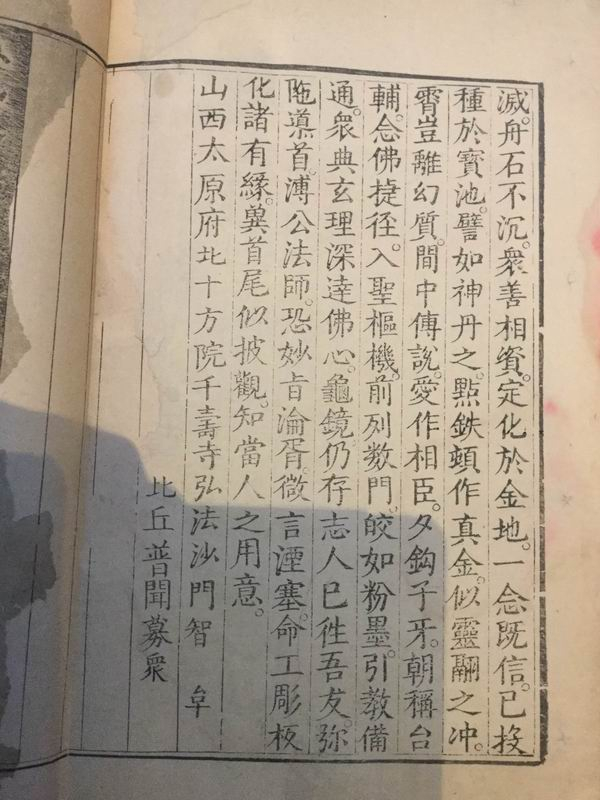 滅。舟石不沉。衆善相資。定化於金地。一念既信。已投
種於寶池。譬如神丹之。點鉄頓作真金。似靈翮之冲。
霄豈離幻質。間中傳說。愛作相臣。夕鈎子牙。朝稱台
輔。念佛捷徑。入聖樞機。前列数門。皎如粉墨。引教備
通。衆典玄理深達佛心。龜鏡仍存志人已徃吾友。弥
陁導首。溥公法師。恐妙旨淪胥。微言湮塞。命工彫板
化諸有緣。兾首尾似披觀。知當人之用意。
山西太原府北十方院千壽寺弘法沙門智
比丘普聞募衆